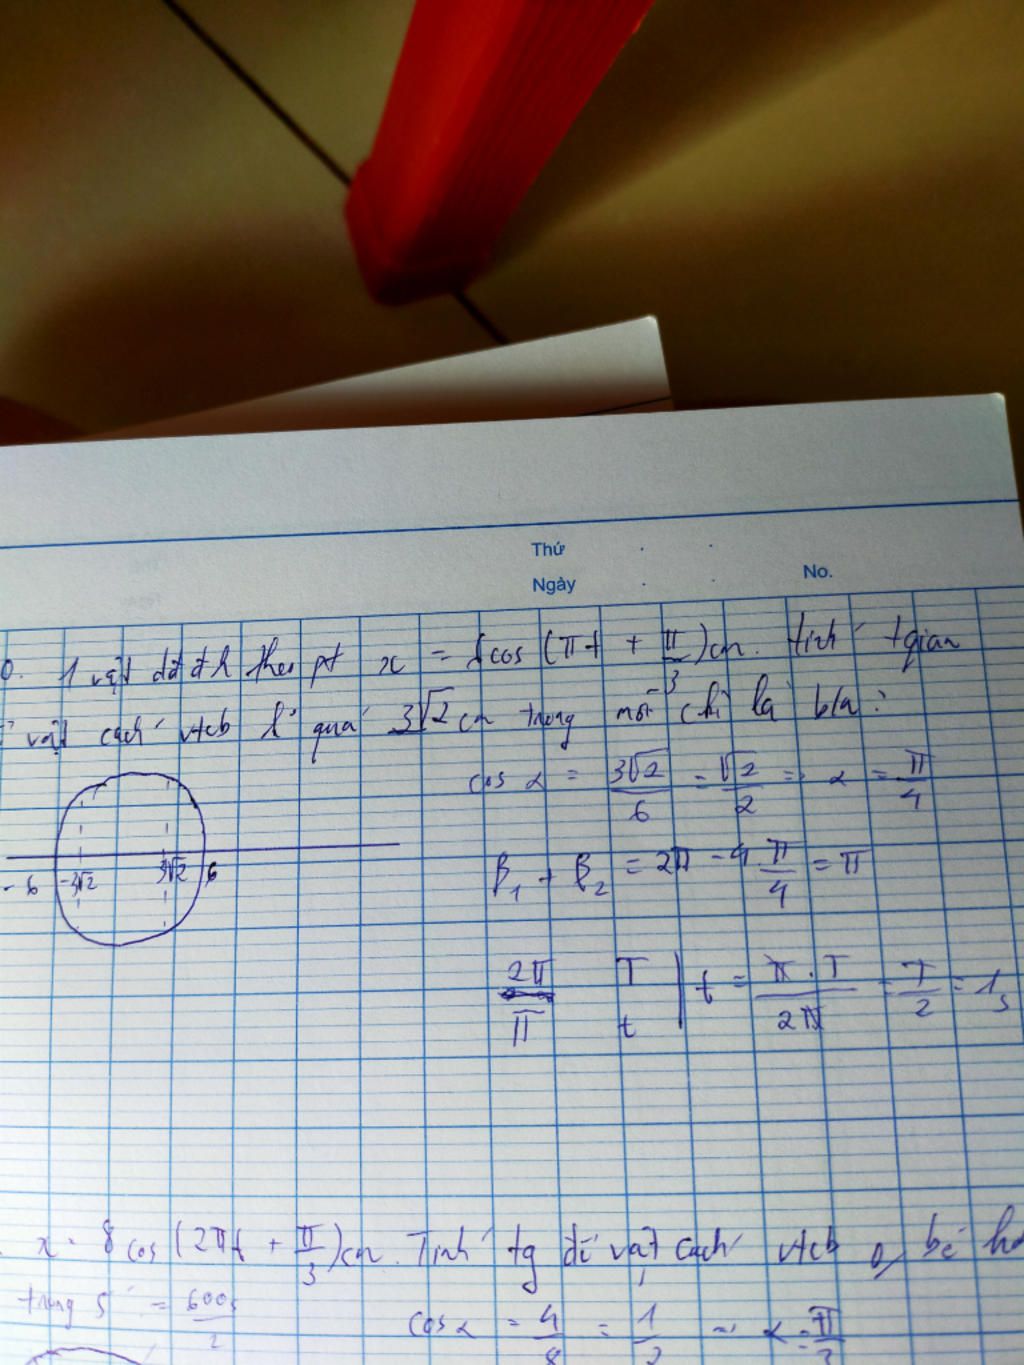 Thứ
Ngày
No.
0. 1 vật dđ đh theo pt x = 6cos (πt + π/3)cm. Tính tgian
vật cách vtcb k quá 3√2 cm trong mỗi chu kì là b/n:
cos α = 3√2/6 = √2/2 => α = π/4
-6 -3√2 3√2 6
β₁ + β₂ = 2π - 4.π/4 = π
2π T
π t
t = π.T/2π = T/2 = 1s
x = 8cos(2πt + π/3)cm. Tính tg để vật cách vtcb
trong 5
cos α = 4/8 = 1/2 => α = π/3